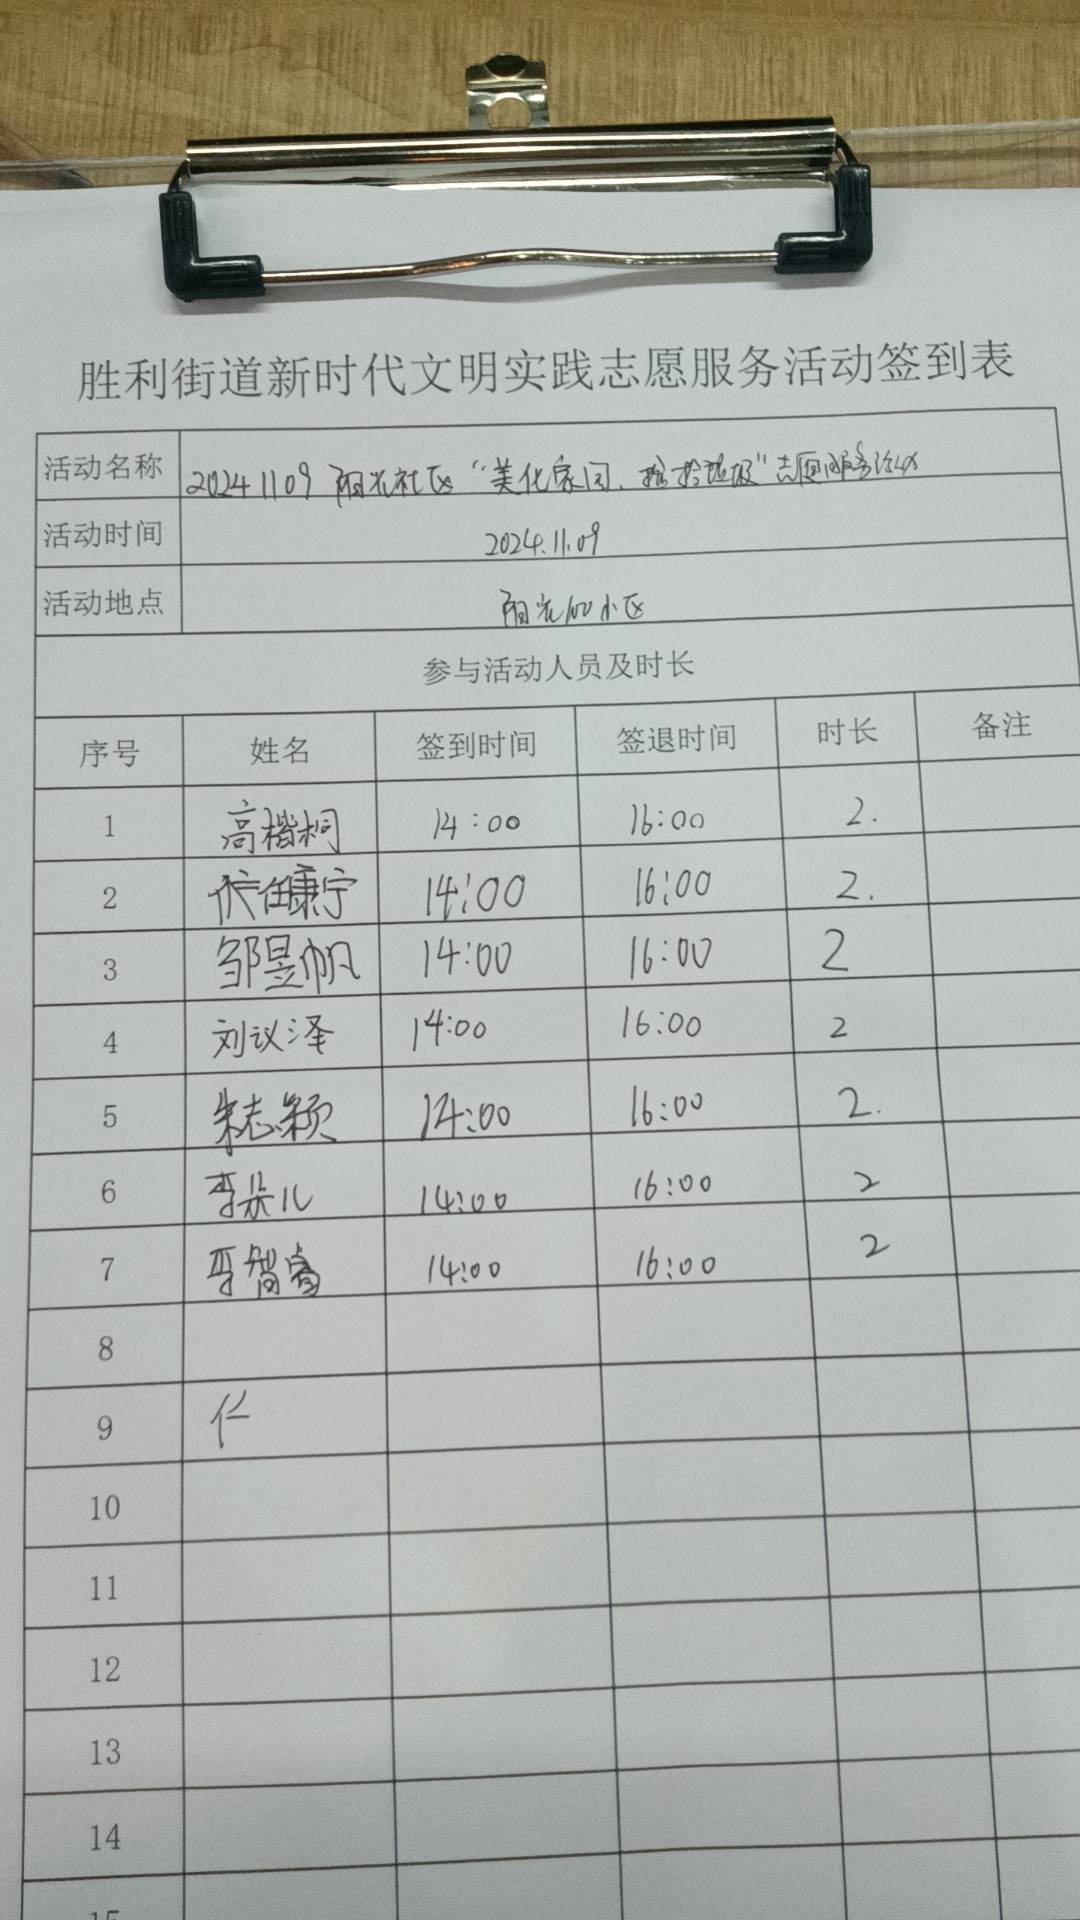 胜利街道新时代文明实践志愿服务活动签到表
活动名称 20241109 阳光社区“美化家园、捡拾垃圾”志愿服务活动
活动时间 2024.11.09
活动地点 阳光100小区
参与活动人员及时长
序号 姓名 签到时间 签退时间 时长 备注
1 高楷桐 14:00 16:00 2.
2 任康宁 14:00 16:00 2.
3 邹昱帆 14:00 16:00 2
4 刘议泽 14:00 16:00 2
5 朱志颖 14:00 16:00 2.
6 李朵儿 14:00 16:00 2
7 李智睿 14:00 16:00 2
8
9
10
11
12
13
14
15